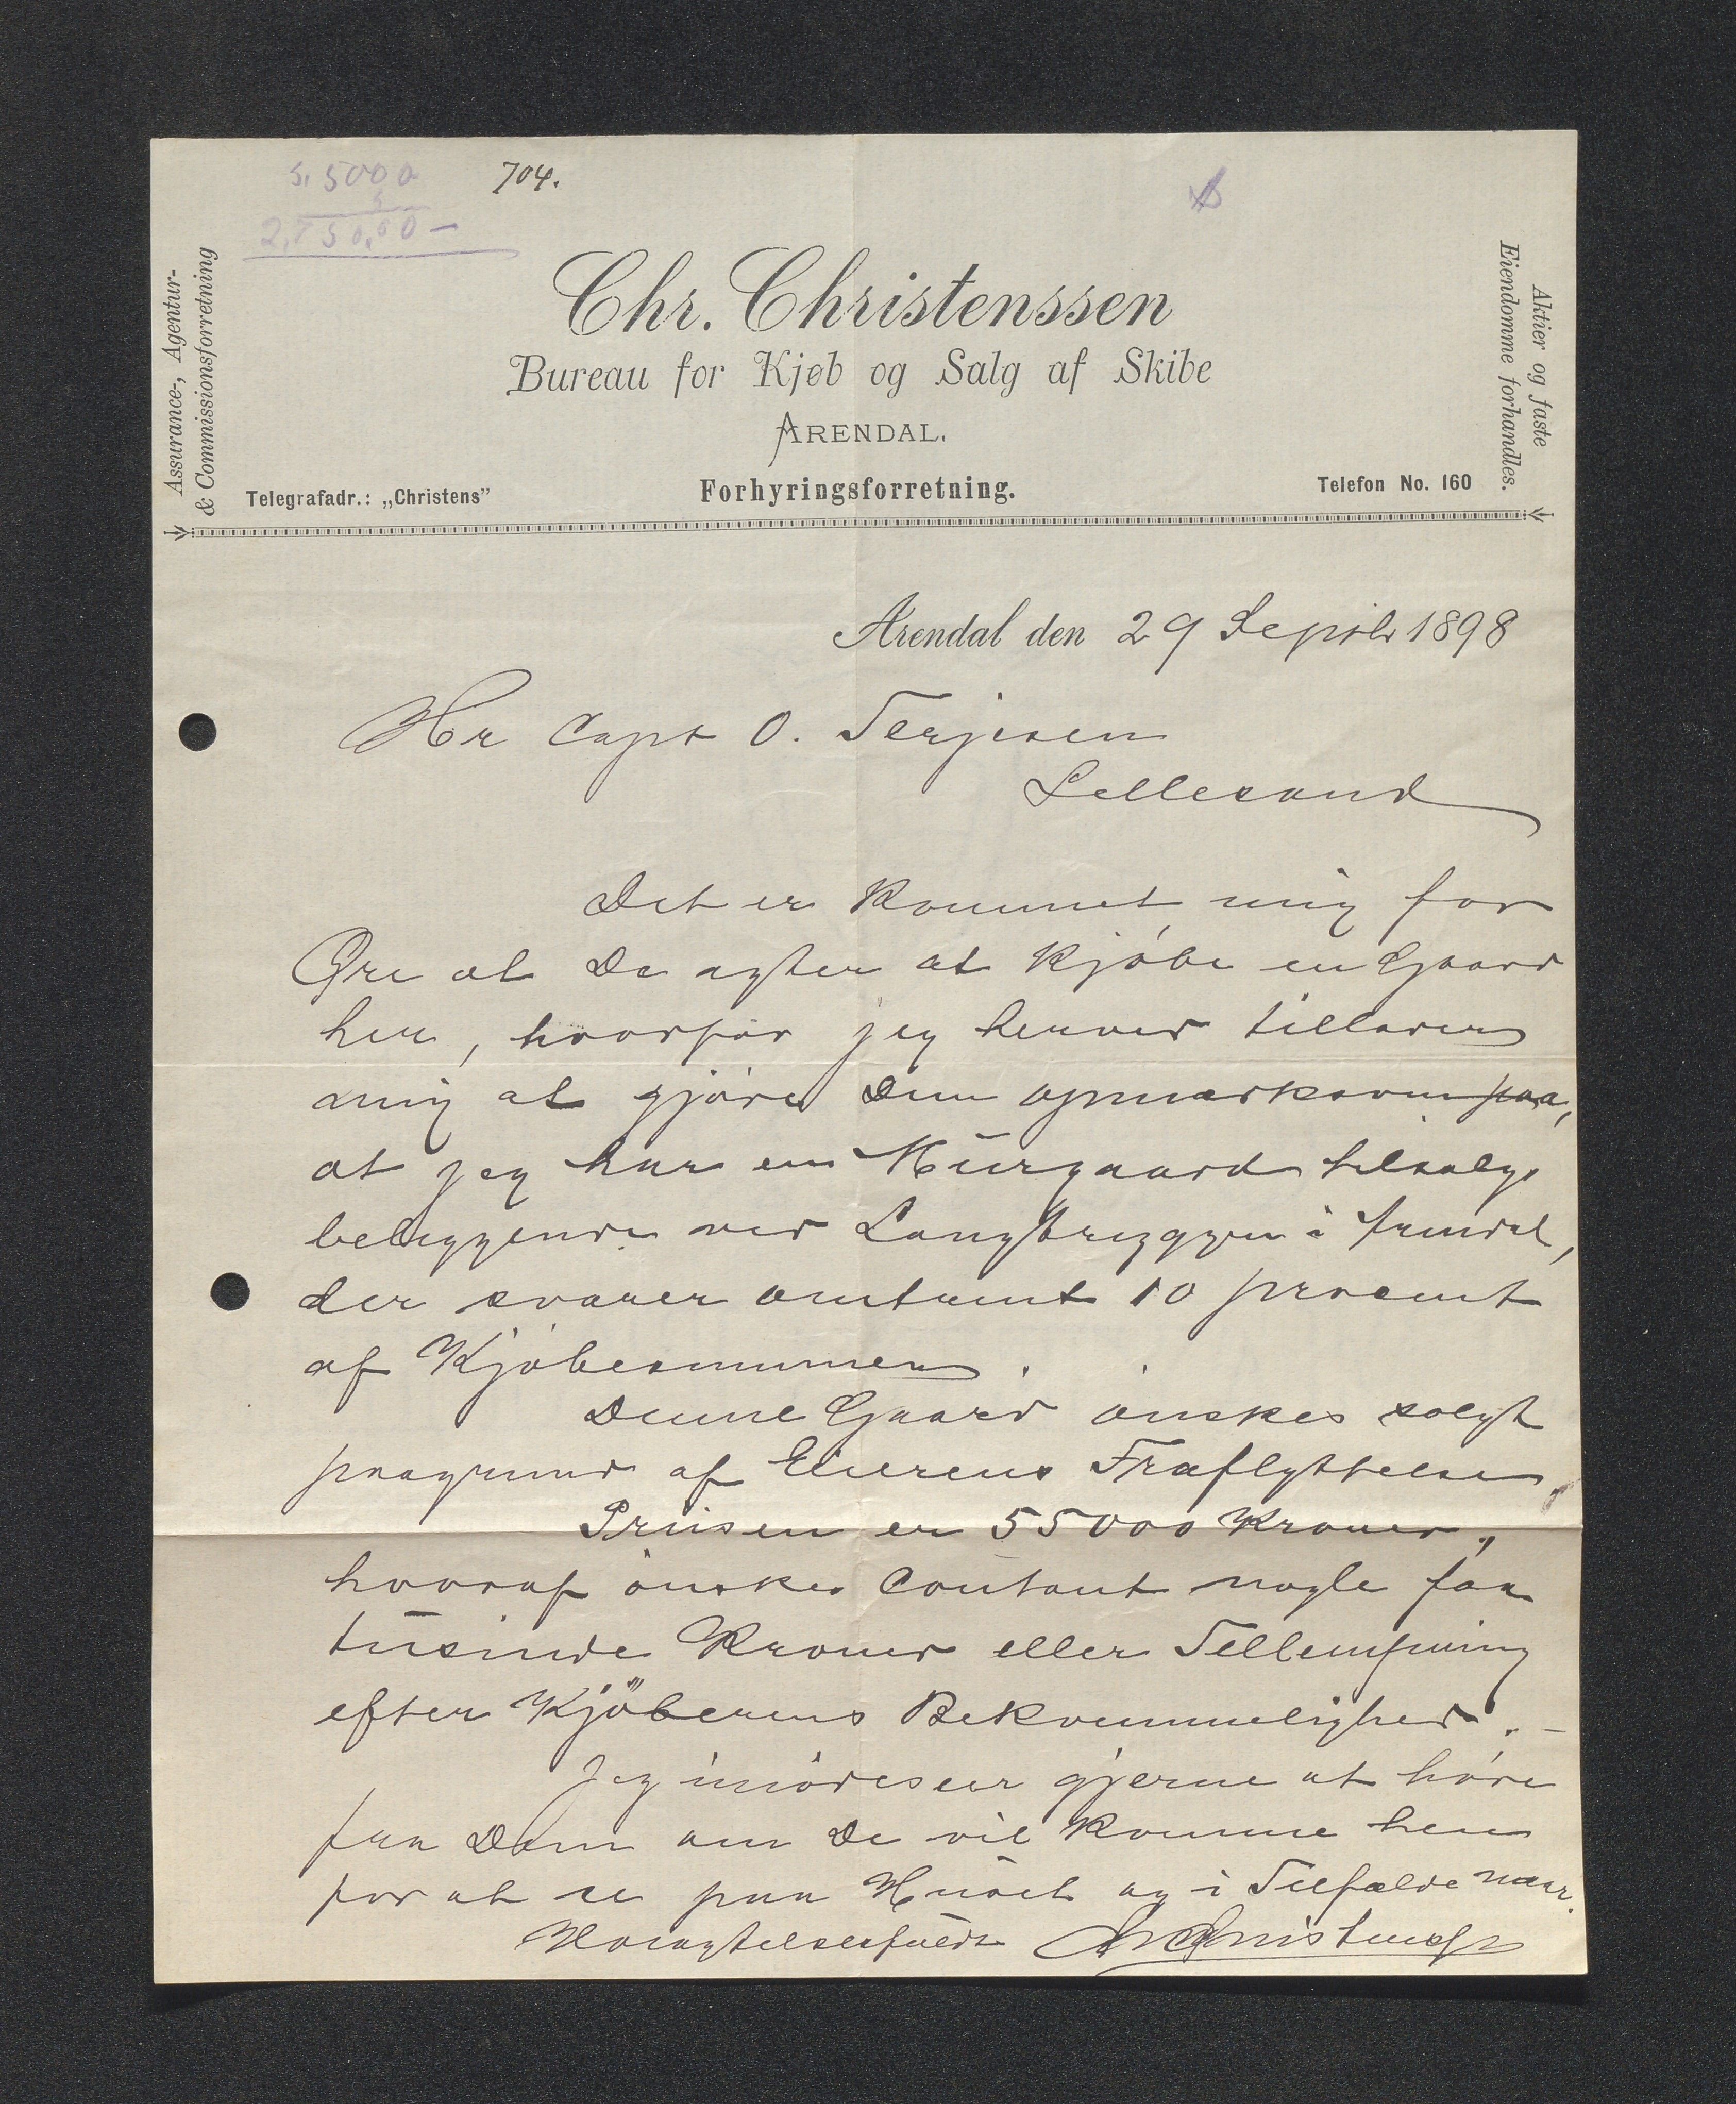 5,5000
704.
5
2,750,00 -
Assurance-, Agentur-
& Commissionsforretning
Chr. Christenssen
Bureau for Kjøb og Salg af Skibe
ARENDAL.
Forhyringsforretning.
Telegrafadr.: „Christens”
Telefon No. 160
Aktier og faste
Eiendomme forhandles.
Arendal den 29 Septbr 1898
Hr Capt O. Terjesen
Lillesand
Det er kommet mig for
Øre at De agter at kjøbe en Gaard
her, hvorfor jeg herved tillader
mig at gjøre Dem opmærksom paa,
at jeg har en Murgaard tilsalgs
beliggende ved Langbryggen i Arendal,
der svarer omtrent 10 procent
af Kjøbesummen.
Denne Gaard ønskes solgt
paagrund af Eierens Fraflyttelse.
Prisen er 55000 Kroner,
hvoraf ønskes Contant nogle faa
tusinde Kroner eller Tillempning
efter Kjøberens Bekvemmelighed. -
Jeg imødeseer gjerne at høre
fra Dem om De vil komme hen
for at se paa Huset og i Tilfælde naar.
Høiagtelsesfuldt Chr Christenssen